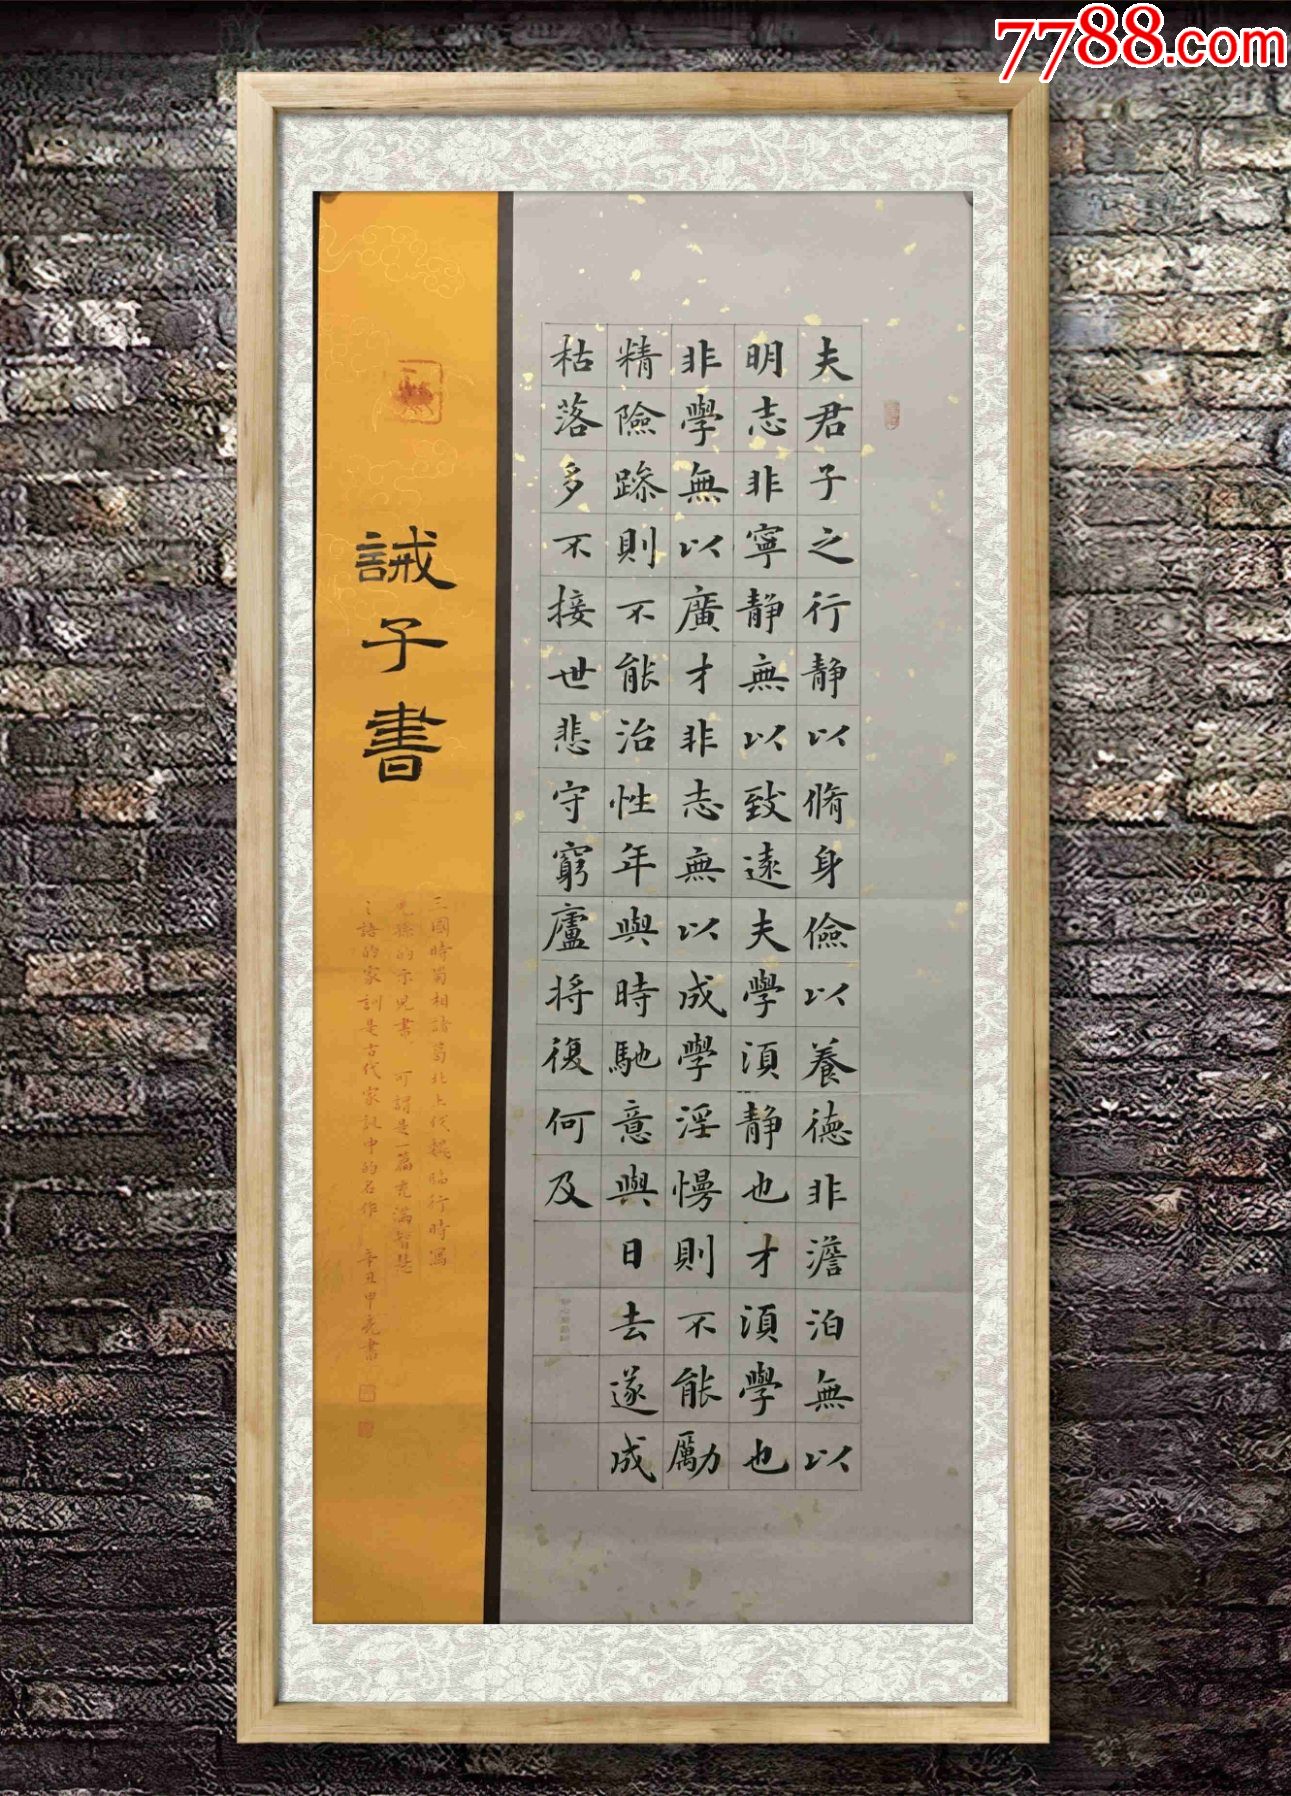 7788.com
夫君子之行静以脩身儉以養德非澹泊無以
明志非寧静無以致遠夫學須静也才須學也
非學無以廣才非志無以成學淫慢則不能勵
精險躁則不能治性年與時馳意與日去遂成
枯落多不接世悲守窮廬将復何及
誡子書
三國時蜀相諸葛北上伐魏臨行時寫
的示兒書可謂是一篇充滿智慧
之語的家訓是古代家訓中的名作 辛丑甲亮書